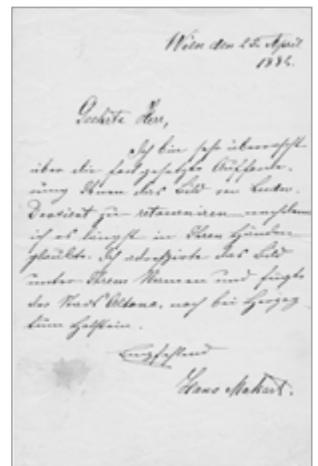 Wien den 25. April
188
Geehrte Herr,
Ich bin sehr überrascht
über die fortgesetzte Aufforde-
rung Ihnen das Bild von
zu retourniren nachdem
ich es längst in Ihren Händen
glaubte. Ich adressirte das Bild
unter Ihrem Namen und fügte
der Stadt Altona, noch bei Herzog-
tum Holstein.
Empfehlend
Hans Makart.